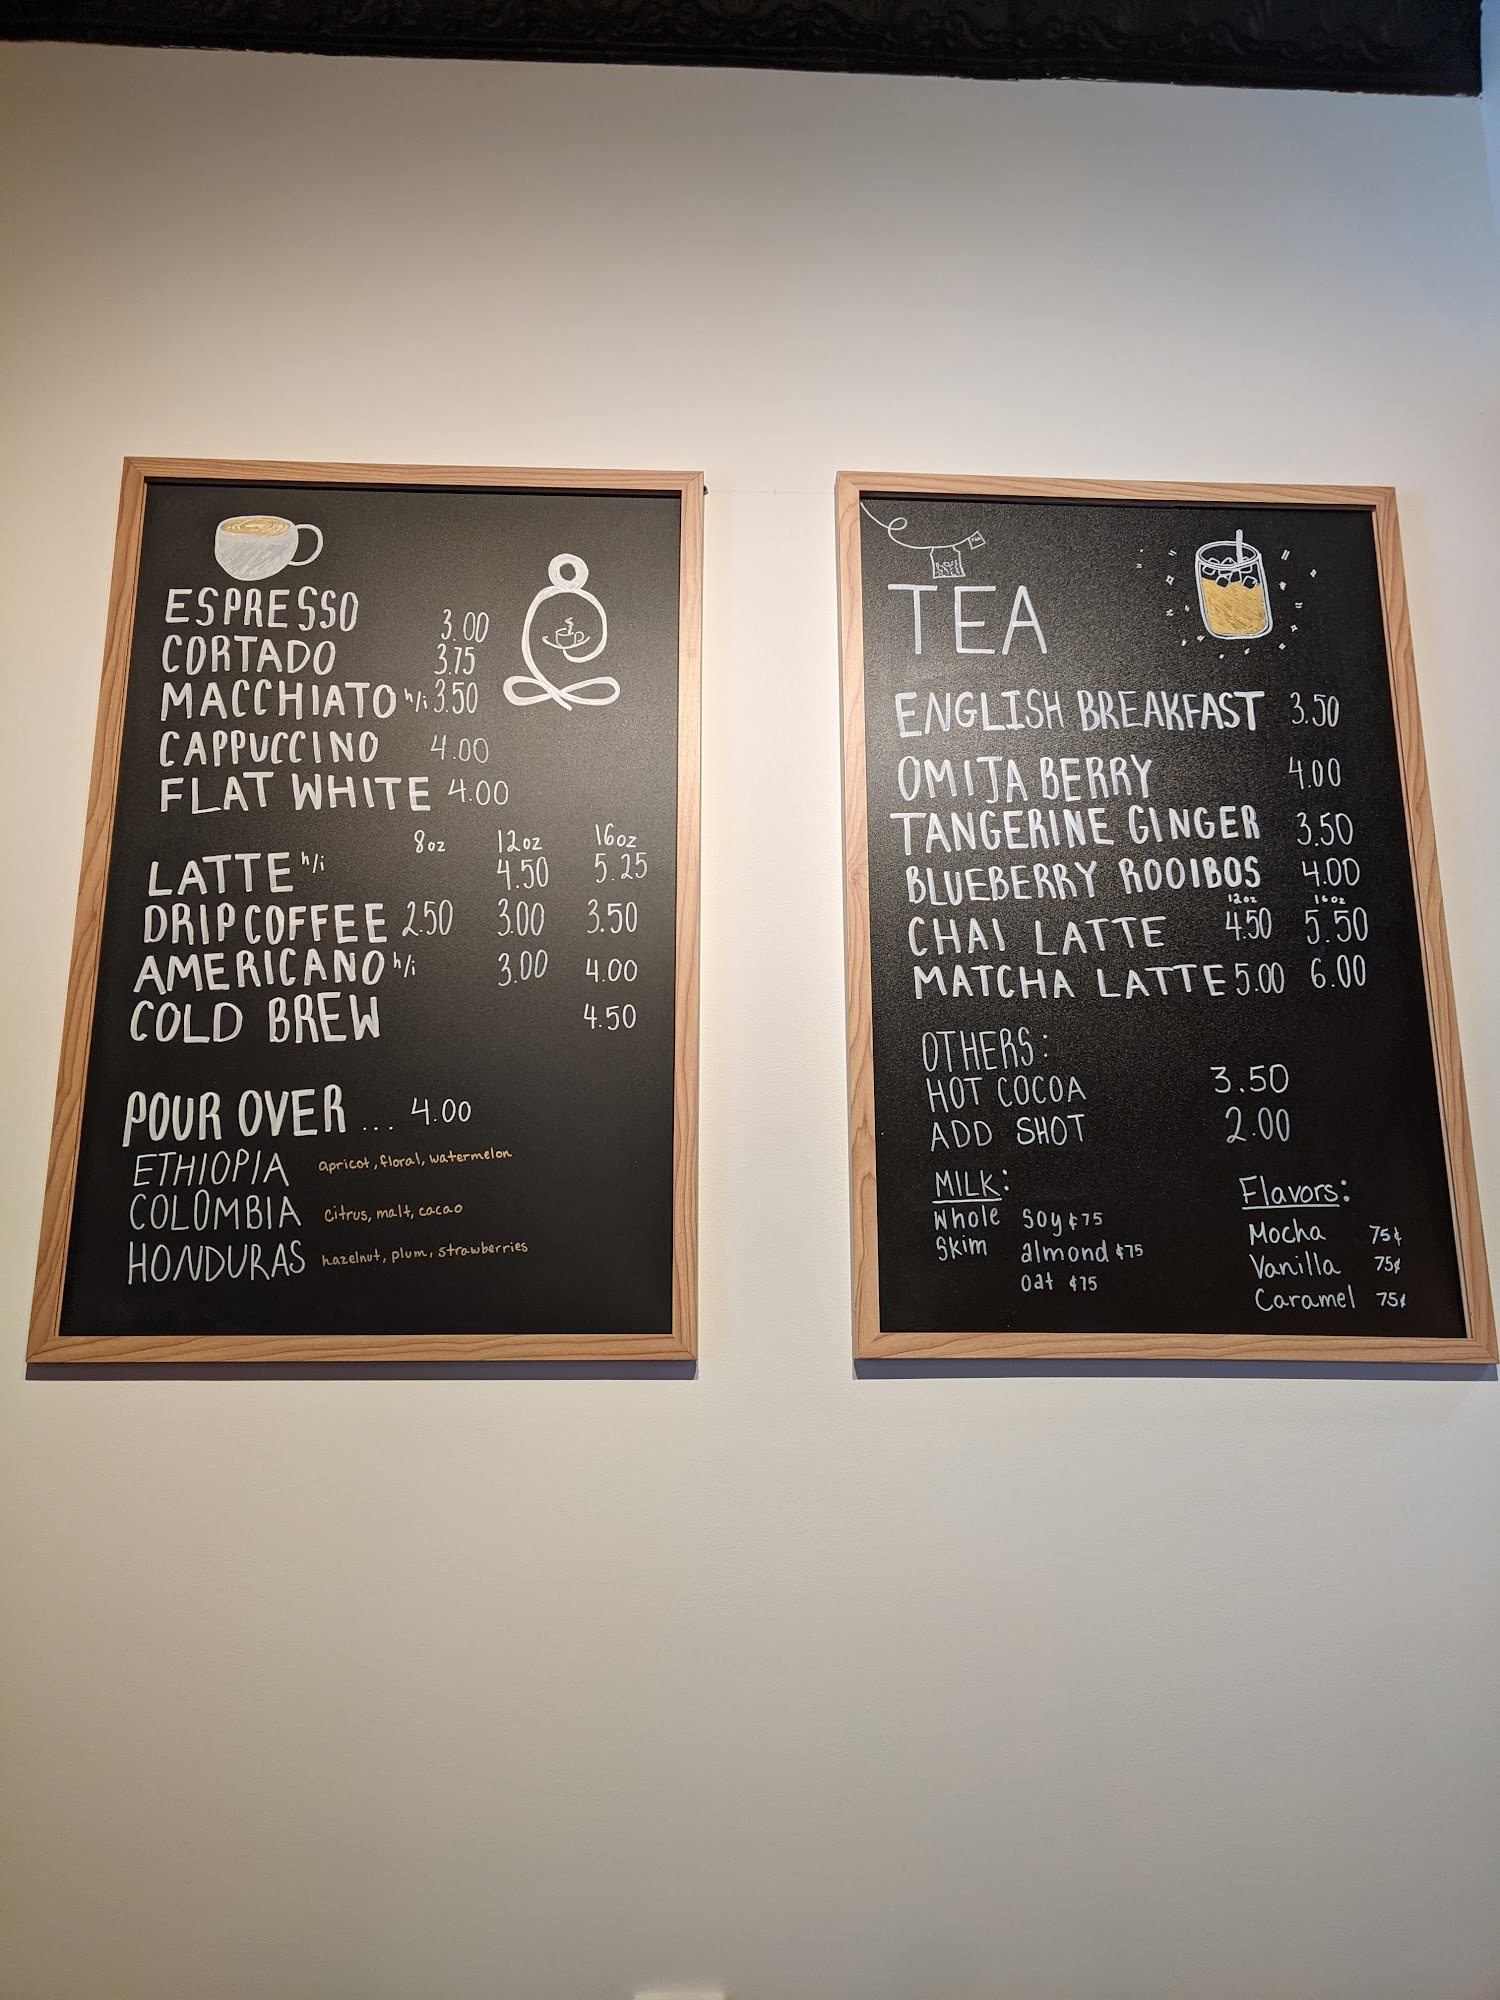 ESPRESSO 3.00
CORTADO 3.75
MACCHIATO h/i 3.50
CAPPUCCINO 4.00
FLAT WHITE 4.00
8oz 12oz 16oz
LATTE h/i 4.50 5.25
DRIP COFFEE 2.50 3.00 3.50
AMERICANO h/i 3.00 4.00
COLD BREW 4.50
POUR OVER ... 4.00
ETHIOPIA apricot, floral, watermelon
COLOMBIA citrus, malt, cacao
HONDURAS hazelnut, plum, strawberries
TEA
ENGLISH BREAKFAST 3.50
OMIJA BERRY 4.00
TANGERINE GINGER 3.50
BLUEBERRY ROOIBOS 4.00
12oz 16oz
CHAI LATTE 4.50 5.50
MATCHA LATTE 5.00 6.00
OTHERS:
HOT COCOA 3.50
ADD SHOT 2.00
MILK:
Whole Soy ¢75
Skim almond ¢75
oat ¢75
Flavors:
Mocha 75¢
Vanilla 75¢
Caramel 75¢